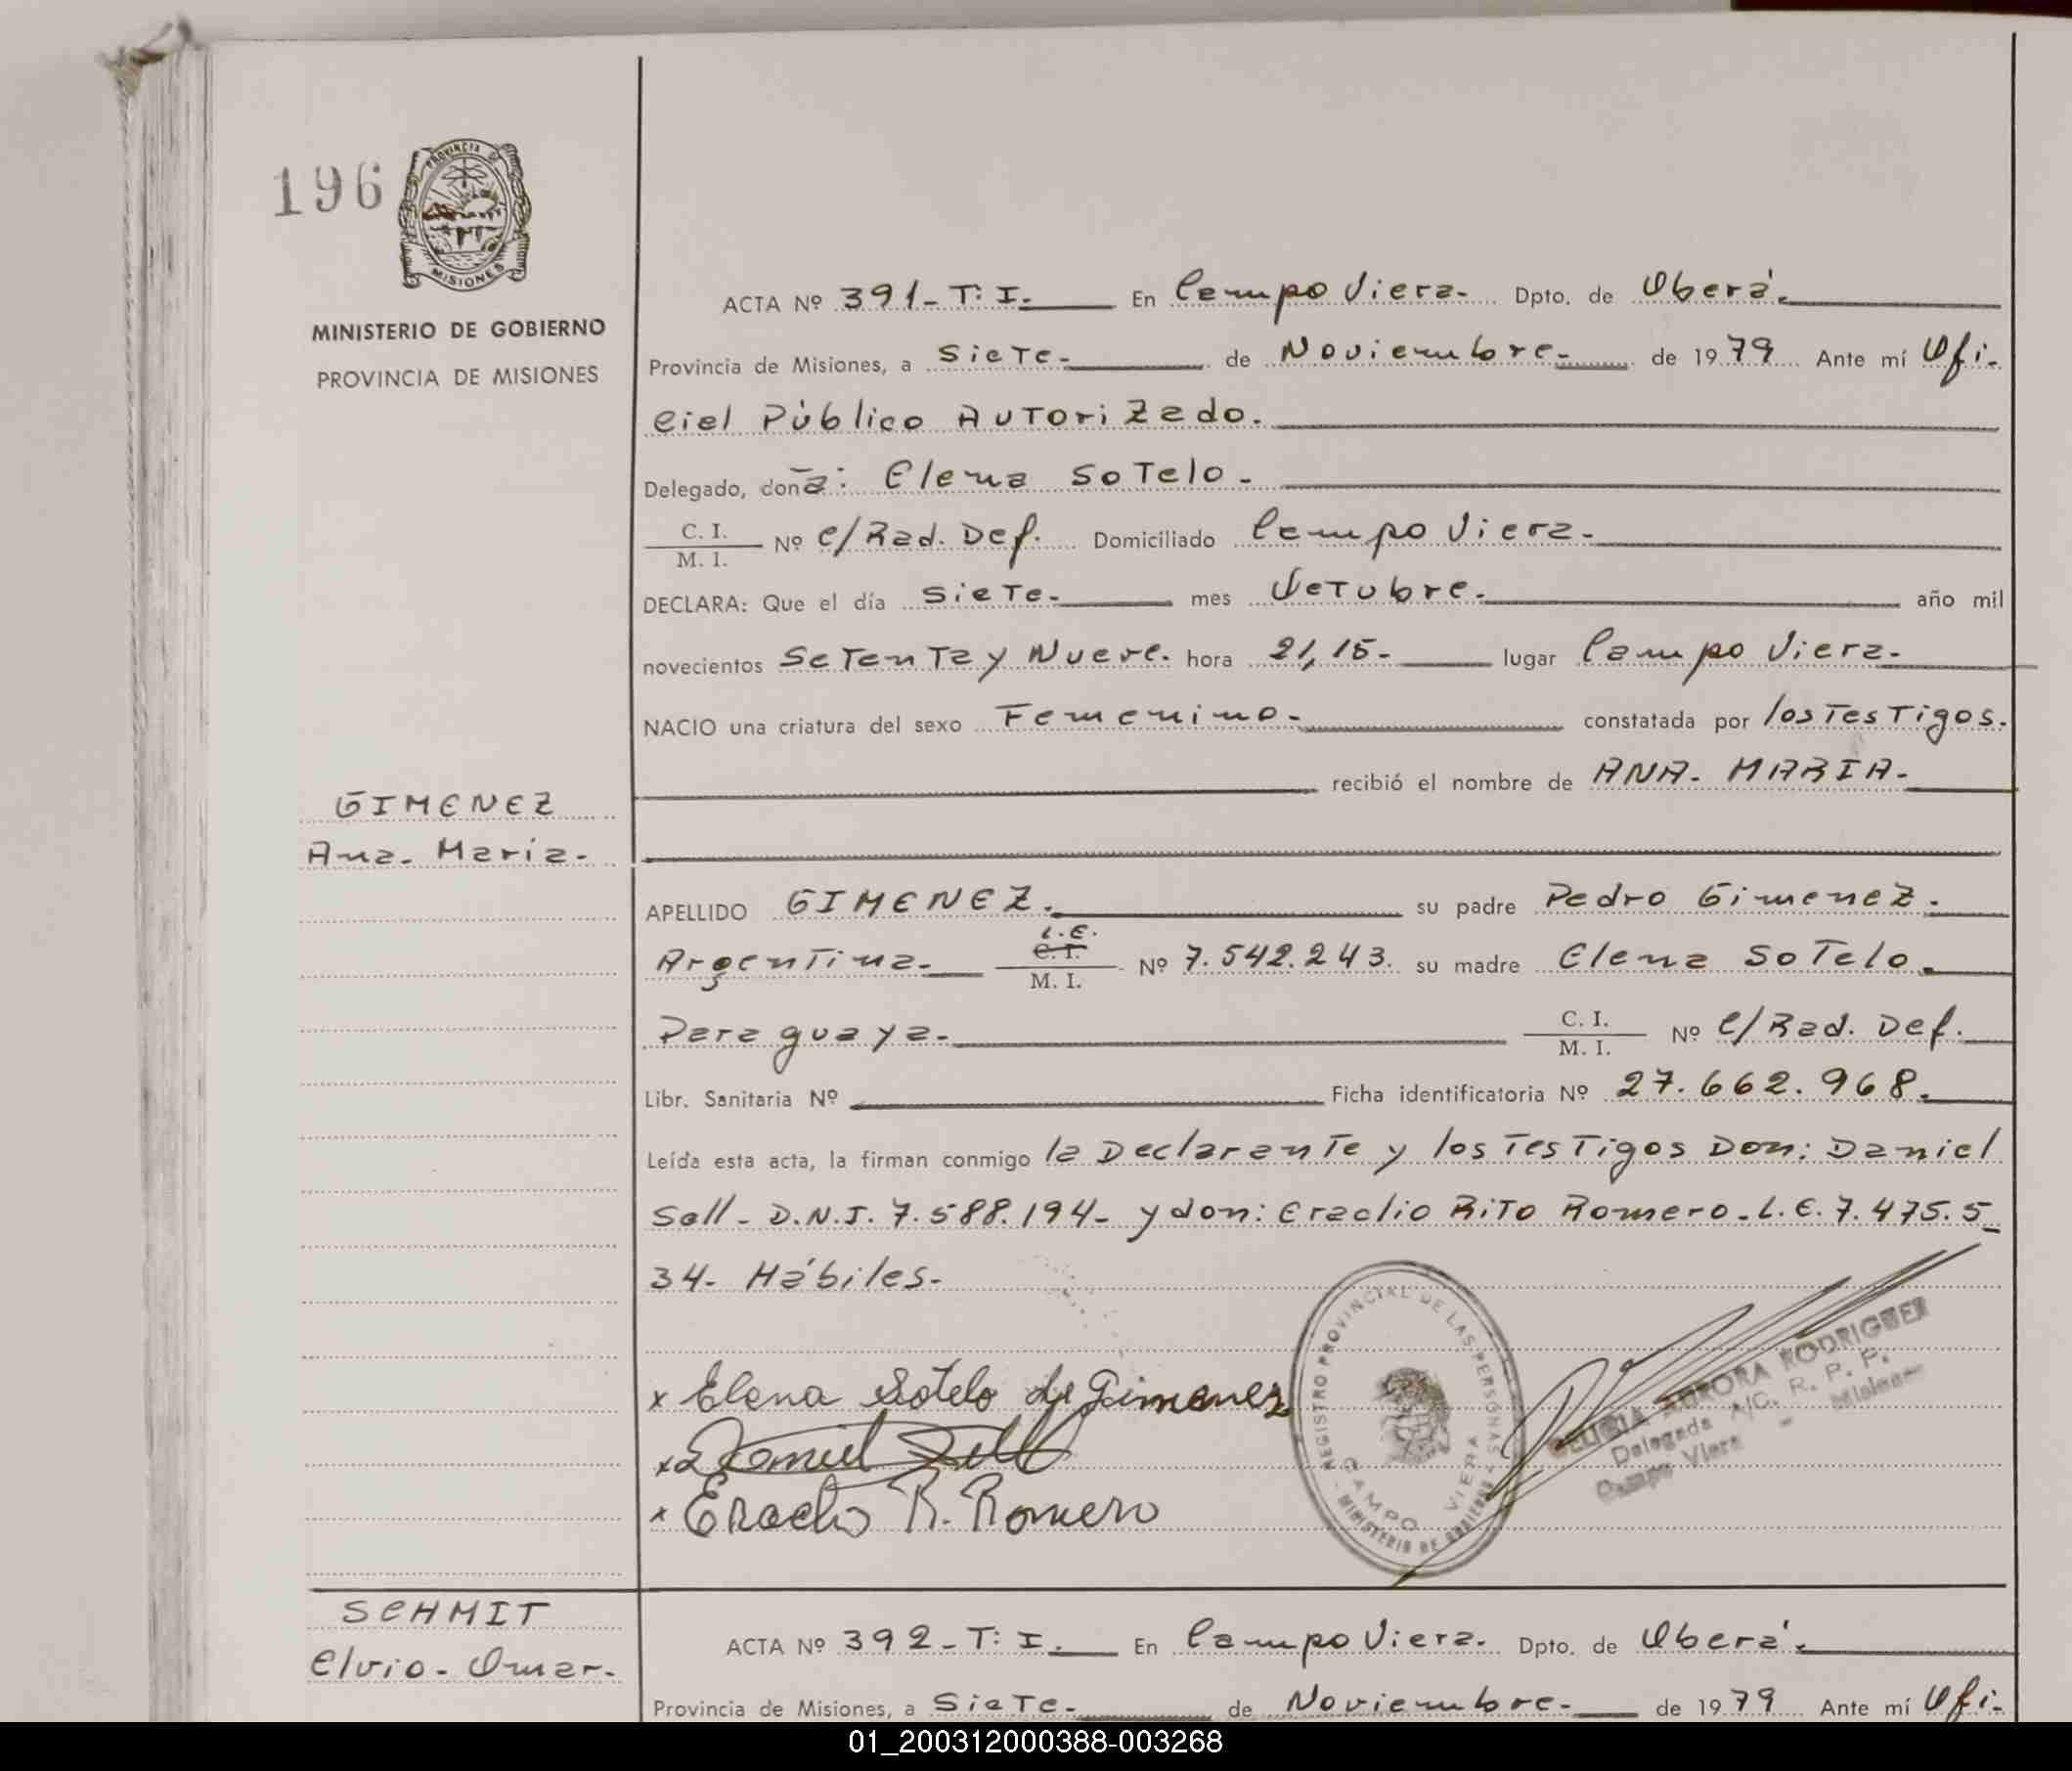 196
PROVINCIA DE
MISIONES
MINISTERIO DE GOBIERNO
PROVINCIA DE MISIONES
ACTA Nº 391-T:I. En Campo Viera. Dpto. de Oberá.
Provincia de Misiones, a Siete. de Noviembre. de 1979 Ante mí Ofi-
cial Público Autorizado.
Delegado, doña: Elena Sotelo.
C. I.
M. I.
Nº C/Rad. Def. Domiciliado Campo Viera.
DECLARA: Que el día Siete. mes Octubre. año mil
novecientos Setenta y Nueve. hora 21,15- lugar Campo Viera.
NACIO una criatura del sexo Femenino. constatada por los Testigos.
recibió el nombre de ANA. MARIA.
GIMENEZ
Ana. Maria.
APELLIDO GIMENEZ. su padre Pedro Gimenez.
Argentina. L.E. C.I. M. I. Nº 7.542.243. su madre Elena Sotelo.
Paraguaya. C. I. M. I. Nº C/Rad. Def.
Libr. Sanitaria Nº Ficha identificatoria Nº 27.662.968.
Leída esta acta, la firman conmigo la Declarante y los Testigos Don: Daniel
Sall. D.N.I. 7.588.194- y don: Eraclio Rito Romero. L.E. 7.475.5
34. Hábiles.
x Elena Sotelo de Gimenez
x Daniel
x Eraclio R. Romero
REGISTRO PROVINCIAL DE LAS PERSONAS
MINISTERIO DE GOBIERNO
CAMPO VIERA
AURORA RODRIGUEZ
Delegada A/C. R. P. P.
Campo Viera - Misiones
SCHMIT
Elvio. Omar.
ACTA Nº 392-T:I. En Campo Viera. Dpto. de Oberá.
Provincia de Misiones, a Siete. de Noviembre. de 1979 Ante mí Ofi-
01_200312000388-003268